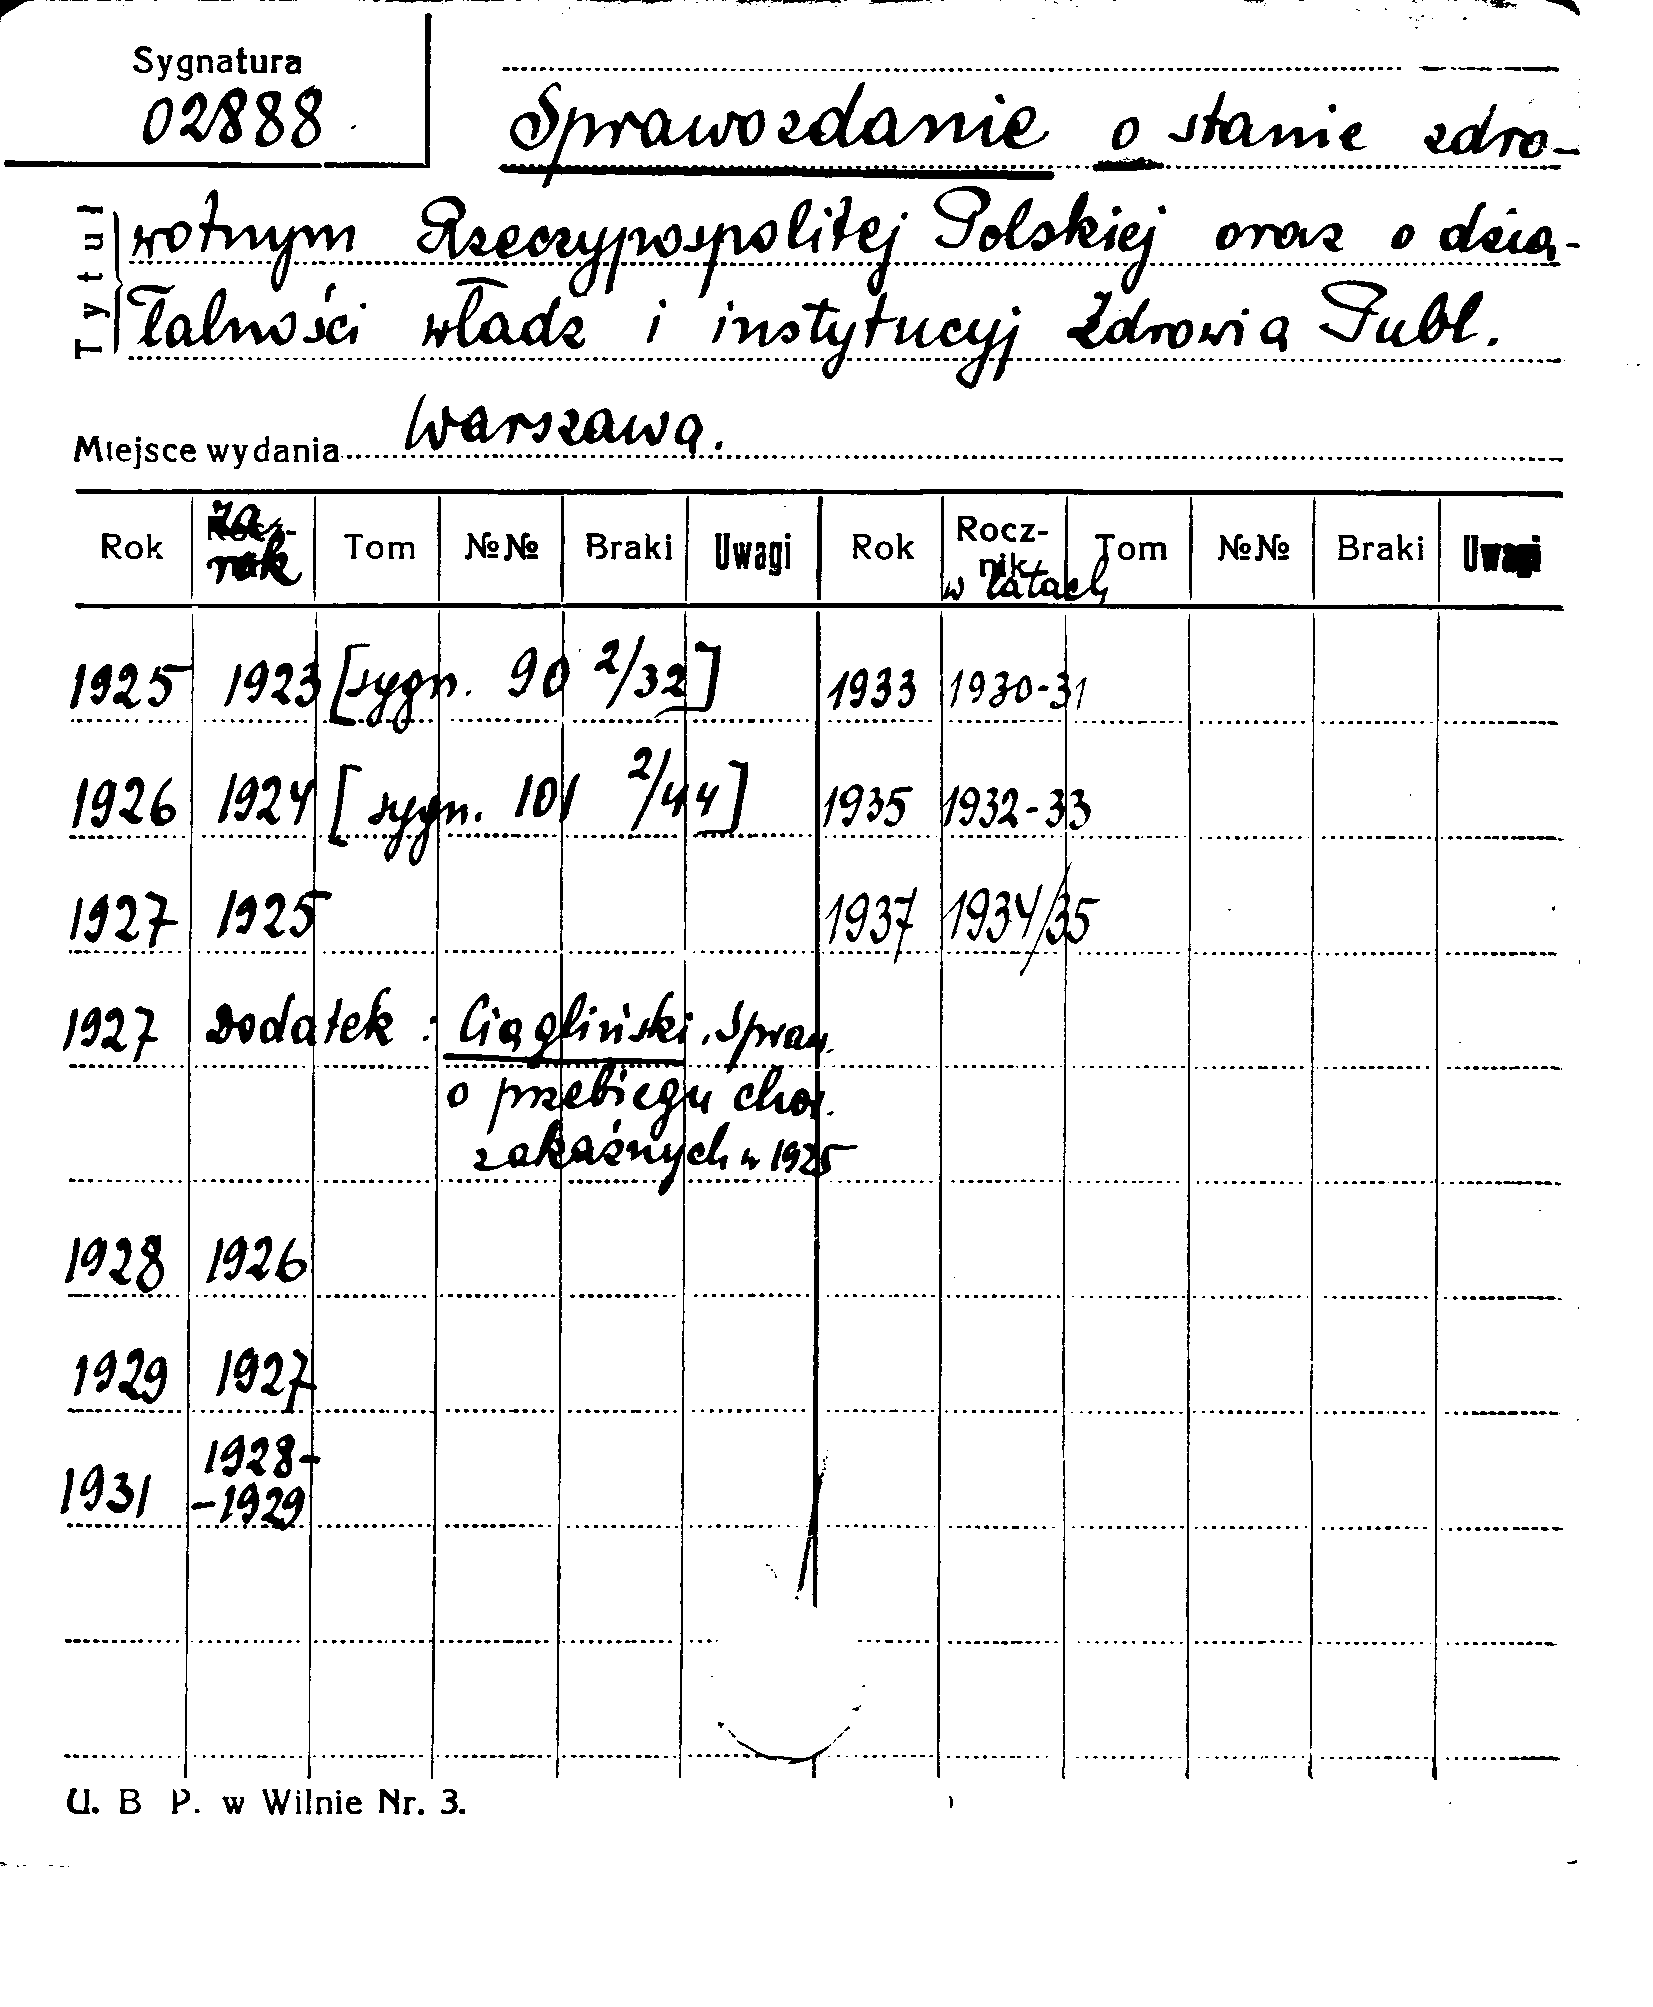 Sygnatura
02888
Sprawozdanie o stanie zdro-
Tytuł
wotnym Rzeczypospolitej Polskiej oraz o dzia-
łalności władz i instytucyj Zdrowia Publ.
Miejsce wydania Warszawa.
Rok Za rok Tom №№ Braki Uwagi Rok Rocz-nik w latach Tom №№ Braki Uwagi
1925 1923 [sygn. 90 2/32] 1933 1930-31
1926 1924 [sygn. 101 2/44] 1935 1932-33
1927 1925 1937 1934/35
1927 Dodatek : Ciągliński. Spraw.
o przebiegu chor.
zakaźnych w 1925
1928 1926
1929 1927
1931 1928-
-1929
U. B P. w Wilnie Nr. 3.